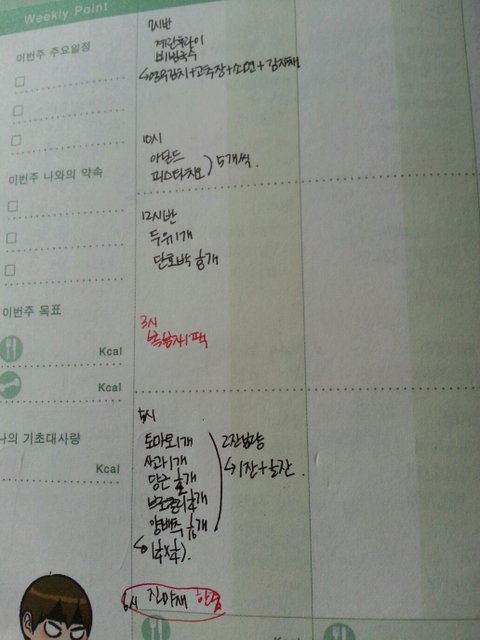 Weekly Point
이번주 주요일정
이번주 나와의 약속
이번주 목표
Kcal
Kcal
나의 기초대사량
Kcal
7시반
계란후라이
비빔국수
↳열무김치+고추장+소면+감자채
10시
아몬드
피스타치오 ) 5개씩.
12시반
두유1개
단호박 개
3시
복분자1팩
시
토마토1개
사과1개
당근 개
브로콜리 개
양배추 1/16개
(1/4x1/4).
2잔분량
↳1잔+ 잔.
6시 진야채 한